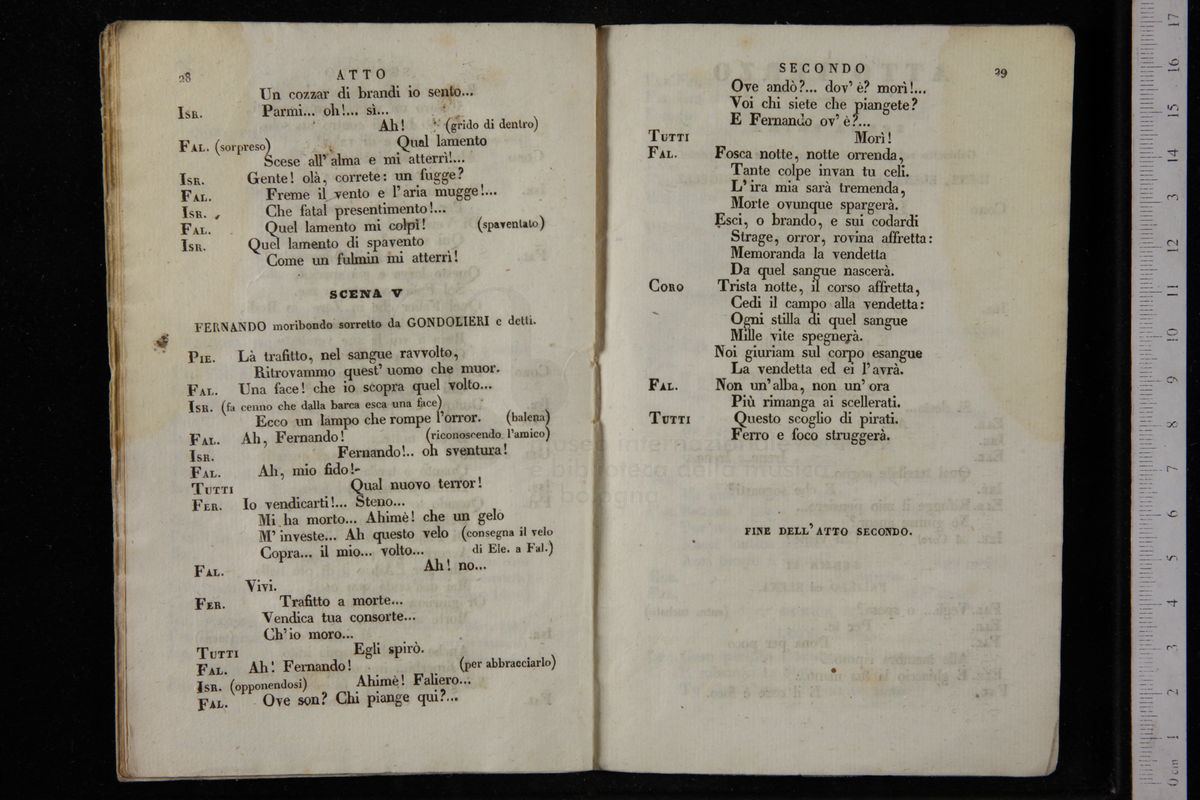 28
ATTO
Un cozzar di brandi io sento...
ISR. Parmi... oh!... sì...
Ah! (grido di dentro)
FAL. (sorpreso) Qual lamento
Scese all' alma e mi atterrì!...
ISR. Gente! olà, correte: un fugge?
FAL. Freme il vento e l'aria mugge!...
ISR. Che fatal presentimento!...
FAL. Quel lamento mi colpì! (spaventato)
ISR. Quel lamento di spavento
Come un fulmin mi atterrì!
SCENA V
FERNANDO moribondo sorretto da GONDOLIERI e detti.
PIE. Là trafitto, nel sangue ravvolto,
Ritrovammo quest' uomo che muor.
FAL. Una face! che io scopra quel volto...
ISR. (fa cenno che dalla barca esca una face)
Ecco un lampo che rompe l'orror. (balena)
FAL. Ah, Fernando! (riconoscendo l'amico)
ISR. Fernando!.. oh sventura!
FAL. Ah, mio fido!-
TUTTI Qual nuovo terror!
FER. Io vendicarti!... Steno...
Mi ha morto... Ahimè! che un gelo
M' investe... Ah questo velo (consegna il velo
Copra... il mio... volto... di Ele. a Fal.)
FAL. Ah! no...
Vivi.
FER. Trafitto a morte...
Vendica tua consorte...
Ch'io moro...
TUTTI Egli spirò.
FAL. Ah! Fernando! (per abbracciarlo)
ISR. (opponendosi) Ahimè! Faliero...
FAL. Ove son? Chi piange qui?...
SECONDO
29
Ove andò?... dov' è? morì!...
Voi chi siete che piangete?
E Fernando ov' è?...
TUTTI Morì!
FAL. Fosca notte, notte orrenda,
Tante colpe invan tu celi.
L' ira mia sarà tremenda,
Morte ovunque spargerà.
Esci, o brando, e sui codardi
Strage, orror, rovina affretta:
Memoranda la vendetta
Da quel sangue nascerà.
CORO Trista notte, il corso affretta,
Cedi il campo alla vendetta:
Ogni stilla di quel sangue
Mille vite spegnerà.
Noi giuriam sul corpo esangue
La vendetta ed ei l'avrà.
FAL. Non un'alba, non un' ora
Più rimanga ai scellerati.
TUTTI Questo scoglio di pirati.
Ferro e foco struggerà.
museo internazionale
e biblioteca della musica
di bologna
FINE DELL' ATTO SECONDO.
0 cm 1 2 3 4 5 6 7 8 9 10 11 12 13 14 15 16 17